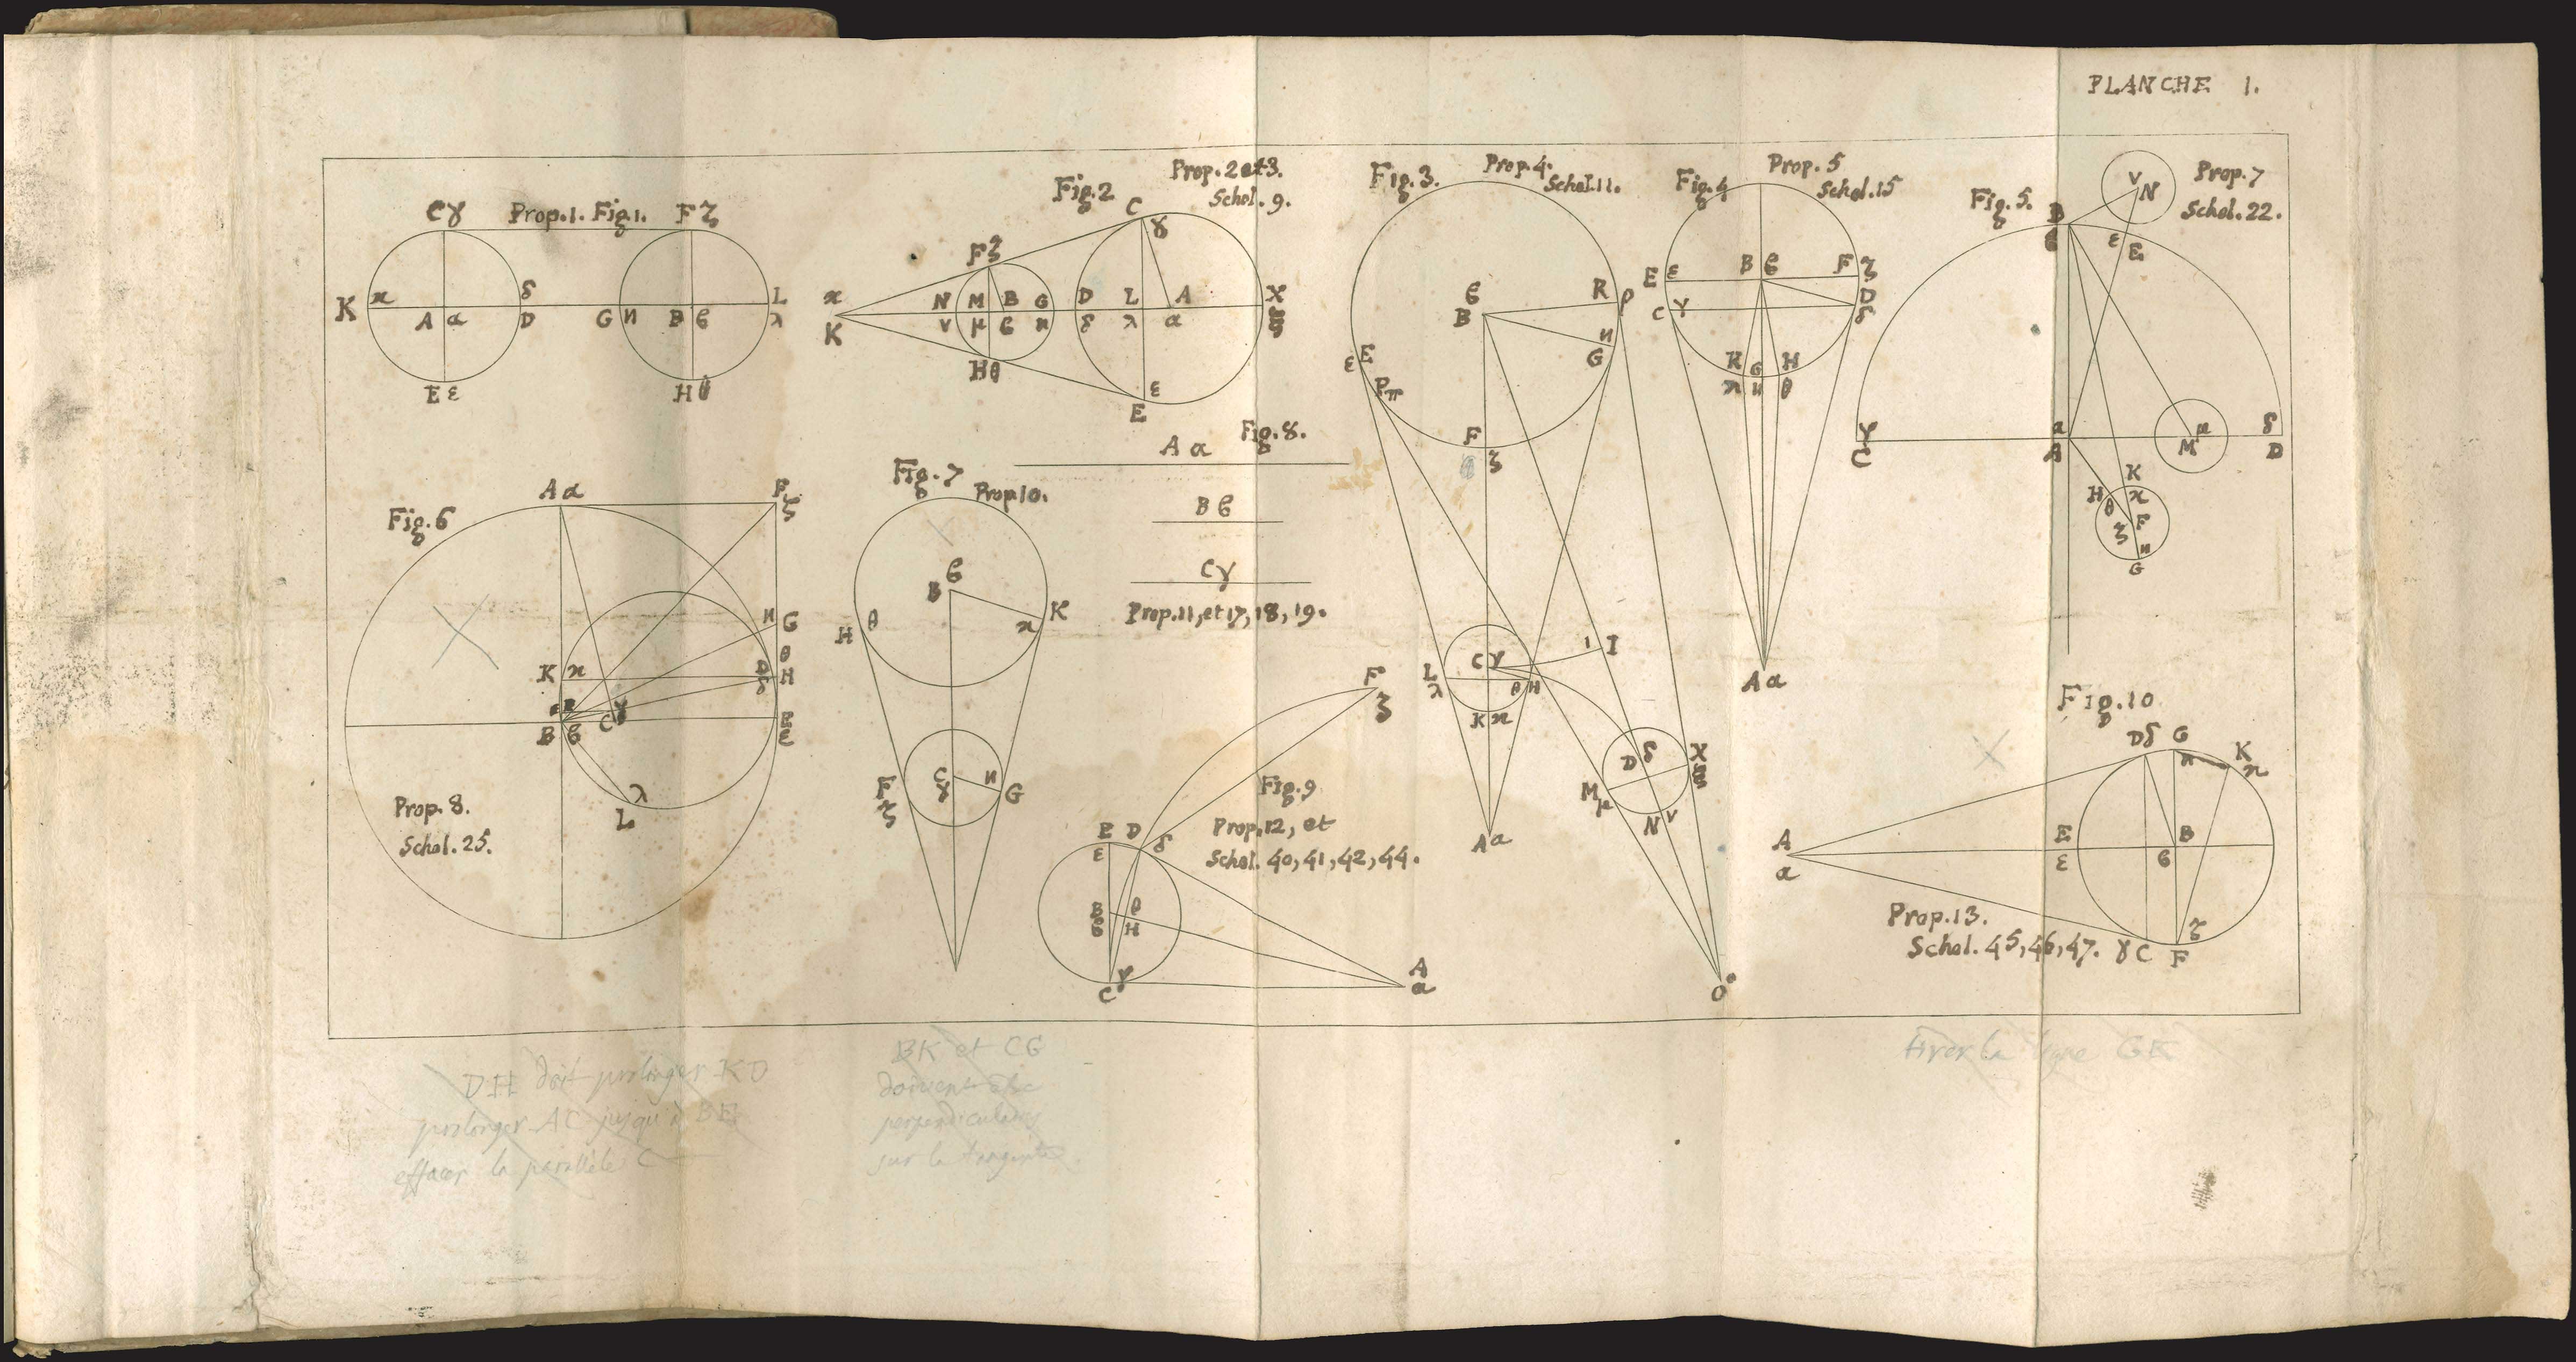 PLANCHE 1.
Prop.1. Fig.1.
Cγ
Fζ
K
ϰ
A α
δ
D
G
и
B ϐ
L
λ
E ε
H θ
Fig.2
Prop. 2 et 3.
Schol. 9.
C
γ
Fζ
ϰ
K
N M B G
ν μ ϐ и
D L A X
δ λ α ξ
Hθ
ε
E
Fig. 3.
Prop. 4.
Schol. 11.
ϐ
B
R ρ
и
G
ε E
Pπ
F
ζ
I
L
λ
C γ
θ H
K ϰ
D δ
X
ξ
M μ
N ν
A α
O
Fig. 4
Prop. 5
Schol. 15
E ε
B ϐ
F ζ
C γ
D
δ
K G H
ϰ и θ
A α
Fig. 5.
Prop. 7
Schol. 22.
ν
N
B
ϐ
ε
E
γ
C
α
A
μ
M
δ
D
K
H ϰ
θ
F
ζ
и
G
Fig. 6
A α
F
ζ
и G
θ
K ϰ
D H
δ
C γ
E
ε
B ϐ
λ
L
Prop. 8.
Schol. 25.
Fig. 7
Prop. 10.
ϐ
B
K
ϰ
H θ
F
ζ
C
γ
и
G
Fig. 8.
A α
B ϐ
C γ
Prop. 11, et 17, 18, 19.
Fig. 9
Prop. 12, et
Schol. 40, 41, 42, 44.
F
ζ
E D
ε δ
B θ
ϐ H
C γ
A
α
Fig. 10
Dδ G
и
K
ϰ
A
α
E
ε
B
ϐ
Prop. 13.
Schol. 45, 46, 47.
γ C
ζ
F
DH doit prolonger KD
prolonger AC jusqu'à BE
effacer la parallèle C
BK et CG
doivent être
perpendiculaires
sur la tangente
tirer la ligne GK